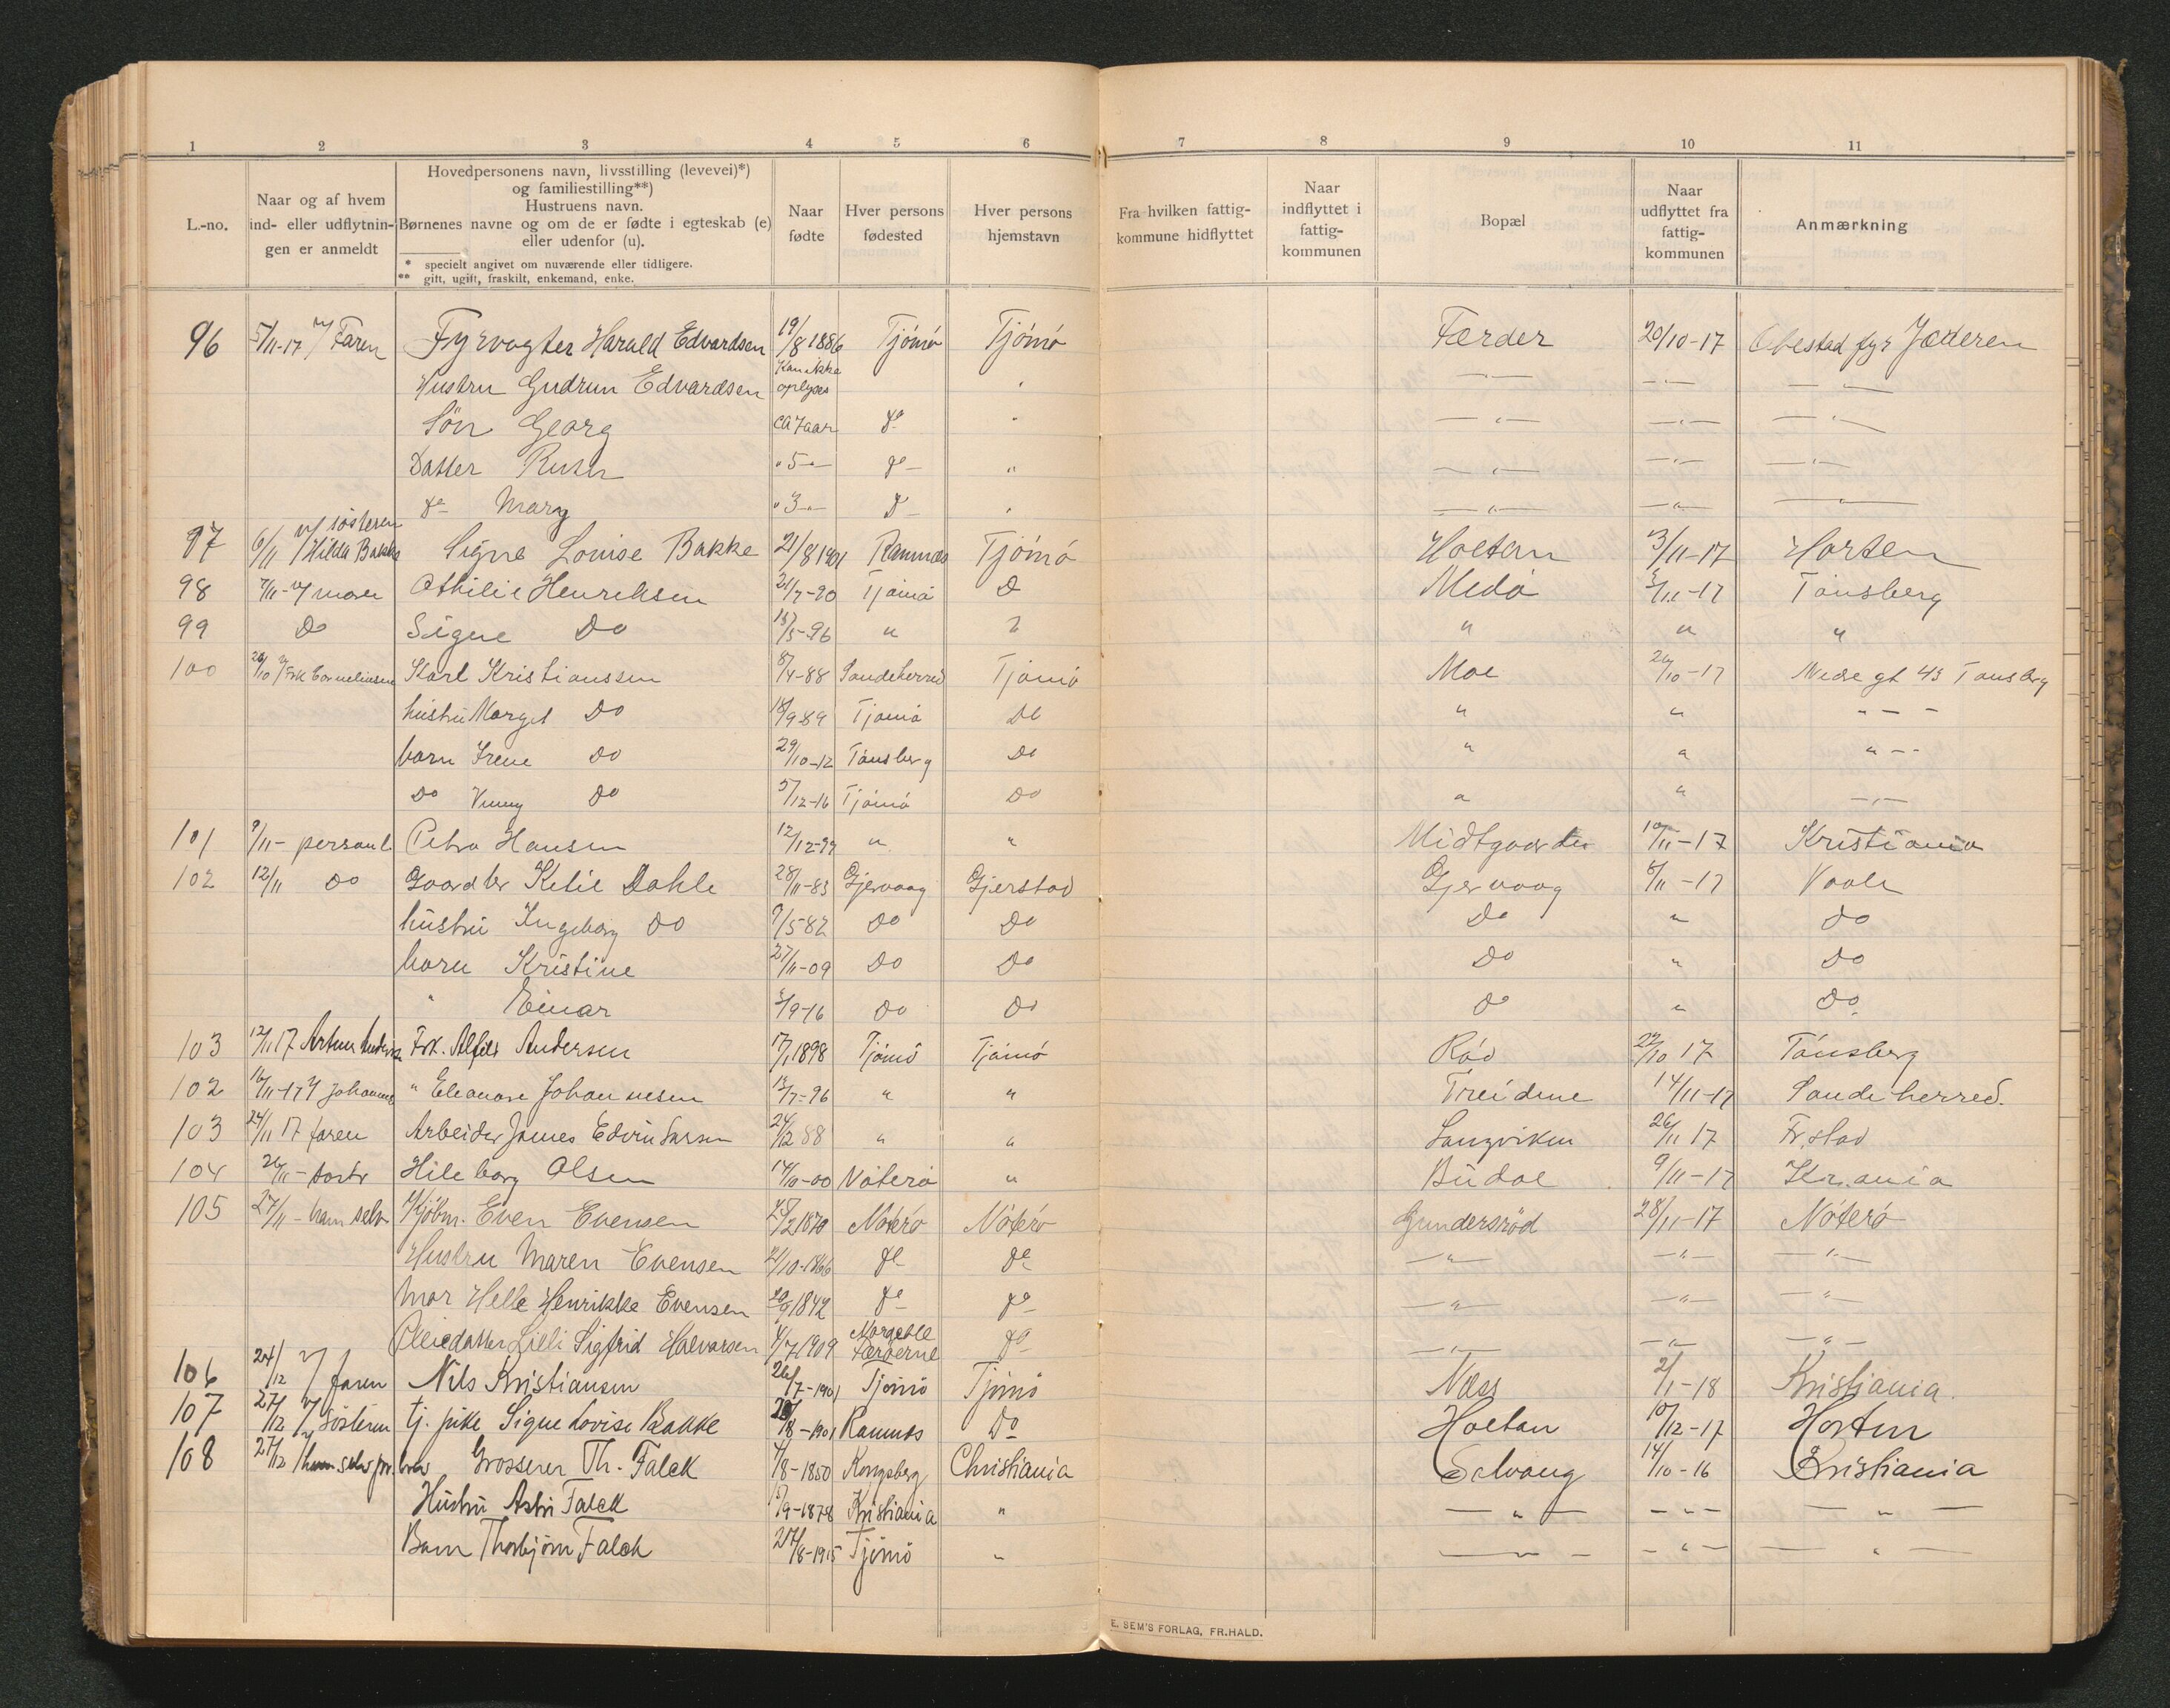 1 2 3 4 5 6 7 8 9 10 11
L.-no.
Naar og af hvem
ind- eller udflytnin-
gen er anmeldt
Hovedpersonens navn, livsstilling (levevei)*)
og familiestilling**)
Hustruens navn.
Børnenes navne og om de er fødte i egteskab (e)
eller udenfor (u).
* specielt angivet om nuværende eller tidligere.
** gift, ugift, fraskilt, enkemand, enke.
Naar
fødte
Hver persons
fødested
Hver persons
hjemstavn
Fra hvilken fattig-
kommune hidflyttet
Naar
indflyttet i
fattig-
kommunen
Bopæl
Naar
udflyttet fra
fattig-
kommunen
Anmærkning
96 5/11-17 v/ Faren Fyrvogter Harald Edvardsen 19/8 1886 Tjömö Tjömö Færder 20/10-17 Obestad fyr Jæderen
Hustru Gudrun Edvardsen Kan ikke oplyses " —"— —"— —"—
Sön Georg ca 7 aar do " —"— —"— —"—
Datter Ruth " 5 -"- do " —"— —"— —"—
do Mary " 3 -"- do " —"— —"— —"—
97 6/11 v/ søsteren Hilda Bakke Signe Louise Bakke 21/8 1901 Ramnæs Tjömö Holtan 3/11-17 Horten
98 7/11 - v/ moren Othilie Henriksen 31/7-90 Tjömö Do Medö 5/11-17 Tönsberg
99 Do Signe Do 15/5-96 " " " " "
100 26/10 v/ Frk Corneliusen Karl Kristianssen 8/4-88 Sandeherred Tjömö Moe 26/10-17 Nedre gt 43 Tønsberg
hustru Marget Do 18/9-89 Tjömö Do " " " - -
barn Irene Do 29/10-12 Tönsberg Do " " " - -
Do Vinny Do 5/12-16 Tjömö Do " " —"—
101 9/11 - personl. Petra Hansen 12/12-99 " " Midtgaarden 10/11-17 Kristiania
102 12/11 Do Gaardbr Ketil Dahle 28/11-83 Gjervaag Gjerstad Gjervaag 8/11-17 Vaale
hustru Ingeborg Do 9/5-82 Do Do Do " Do
barn Kristine 27/11-09 Do Do Do " Do
" Einar 5/9-16 Do Do Do " Do
103 12/11 17 Artur Anders. Frk. Alfild Andersen 17/1 1898 Tjömö Tjömö Röd 29/10 17 Tönsberg
102 16/11-17 v/ Johannes " Eleonore Johannesen 18/7-96 " " Treidene 14/11-17 Sandeherred.
103 24/11 17 faren Arbeider James Edvin Larsen 24/12 88 " " Langviken 26/11 17 Fr.stad
104 26/11 - Hileborg Olsen 14/10-00 Nöterö " Budal 9/11-17 Kr.ania
105 27/11 - ham selv Kjöbm. Even Evensen 25/2 1870 Nöterö Nöterö Gundersröd 28/11-17 Nöterö
Hustru Maren Evensen 21/10-1866 do do —"— —"— —"—
Mor Helle Henrikke Evensen 20/9 1842 do do —"— —"— —"—
Pleiedatter Lilli Sigfrid Halvorsen 4/7 1909 Færøerne do —"— —"— —"—
106 24/12 v/ faren Nils Kristiansen 26/7-1901 Tjömö Tjömö Næss 2/1-18 Kristiania.
107 27/12 v/ Søsteren tj. pike Signe Lovise Bakke 21/8-1901 Ramnæs Do Holtan 10/12-17 Horten
108 27/12 v/ ham selv pr. brev Grosserer Th. Falck 4/8-1850 Kongsberg Christiania Solvang 14/10-16 Kristiania
Hustru Astri Falck 17/9-1878 Kristiania " —"— -"- —"—
Barn Thorbjörn Falck 24/8-1915 Tjömö " —"— -"- —"—
E. SEM'S FORLAG, FR.HALD.